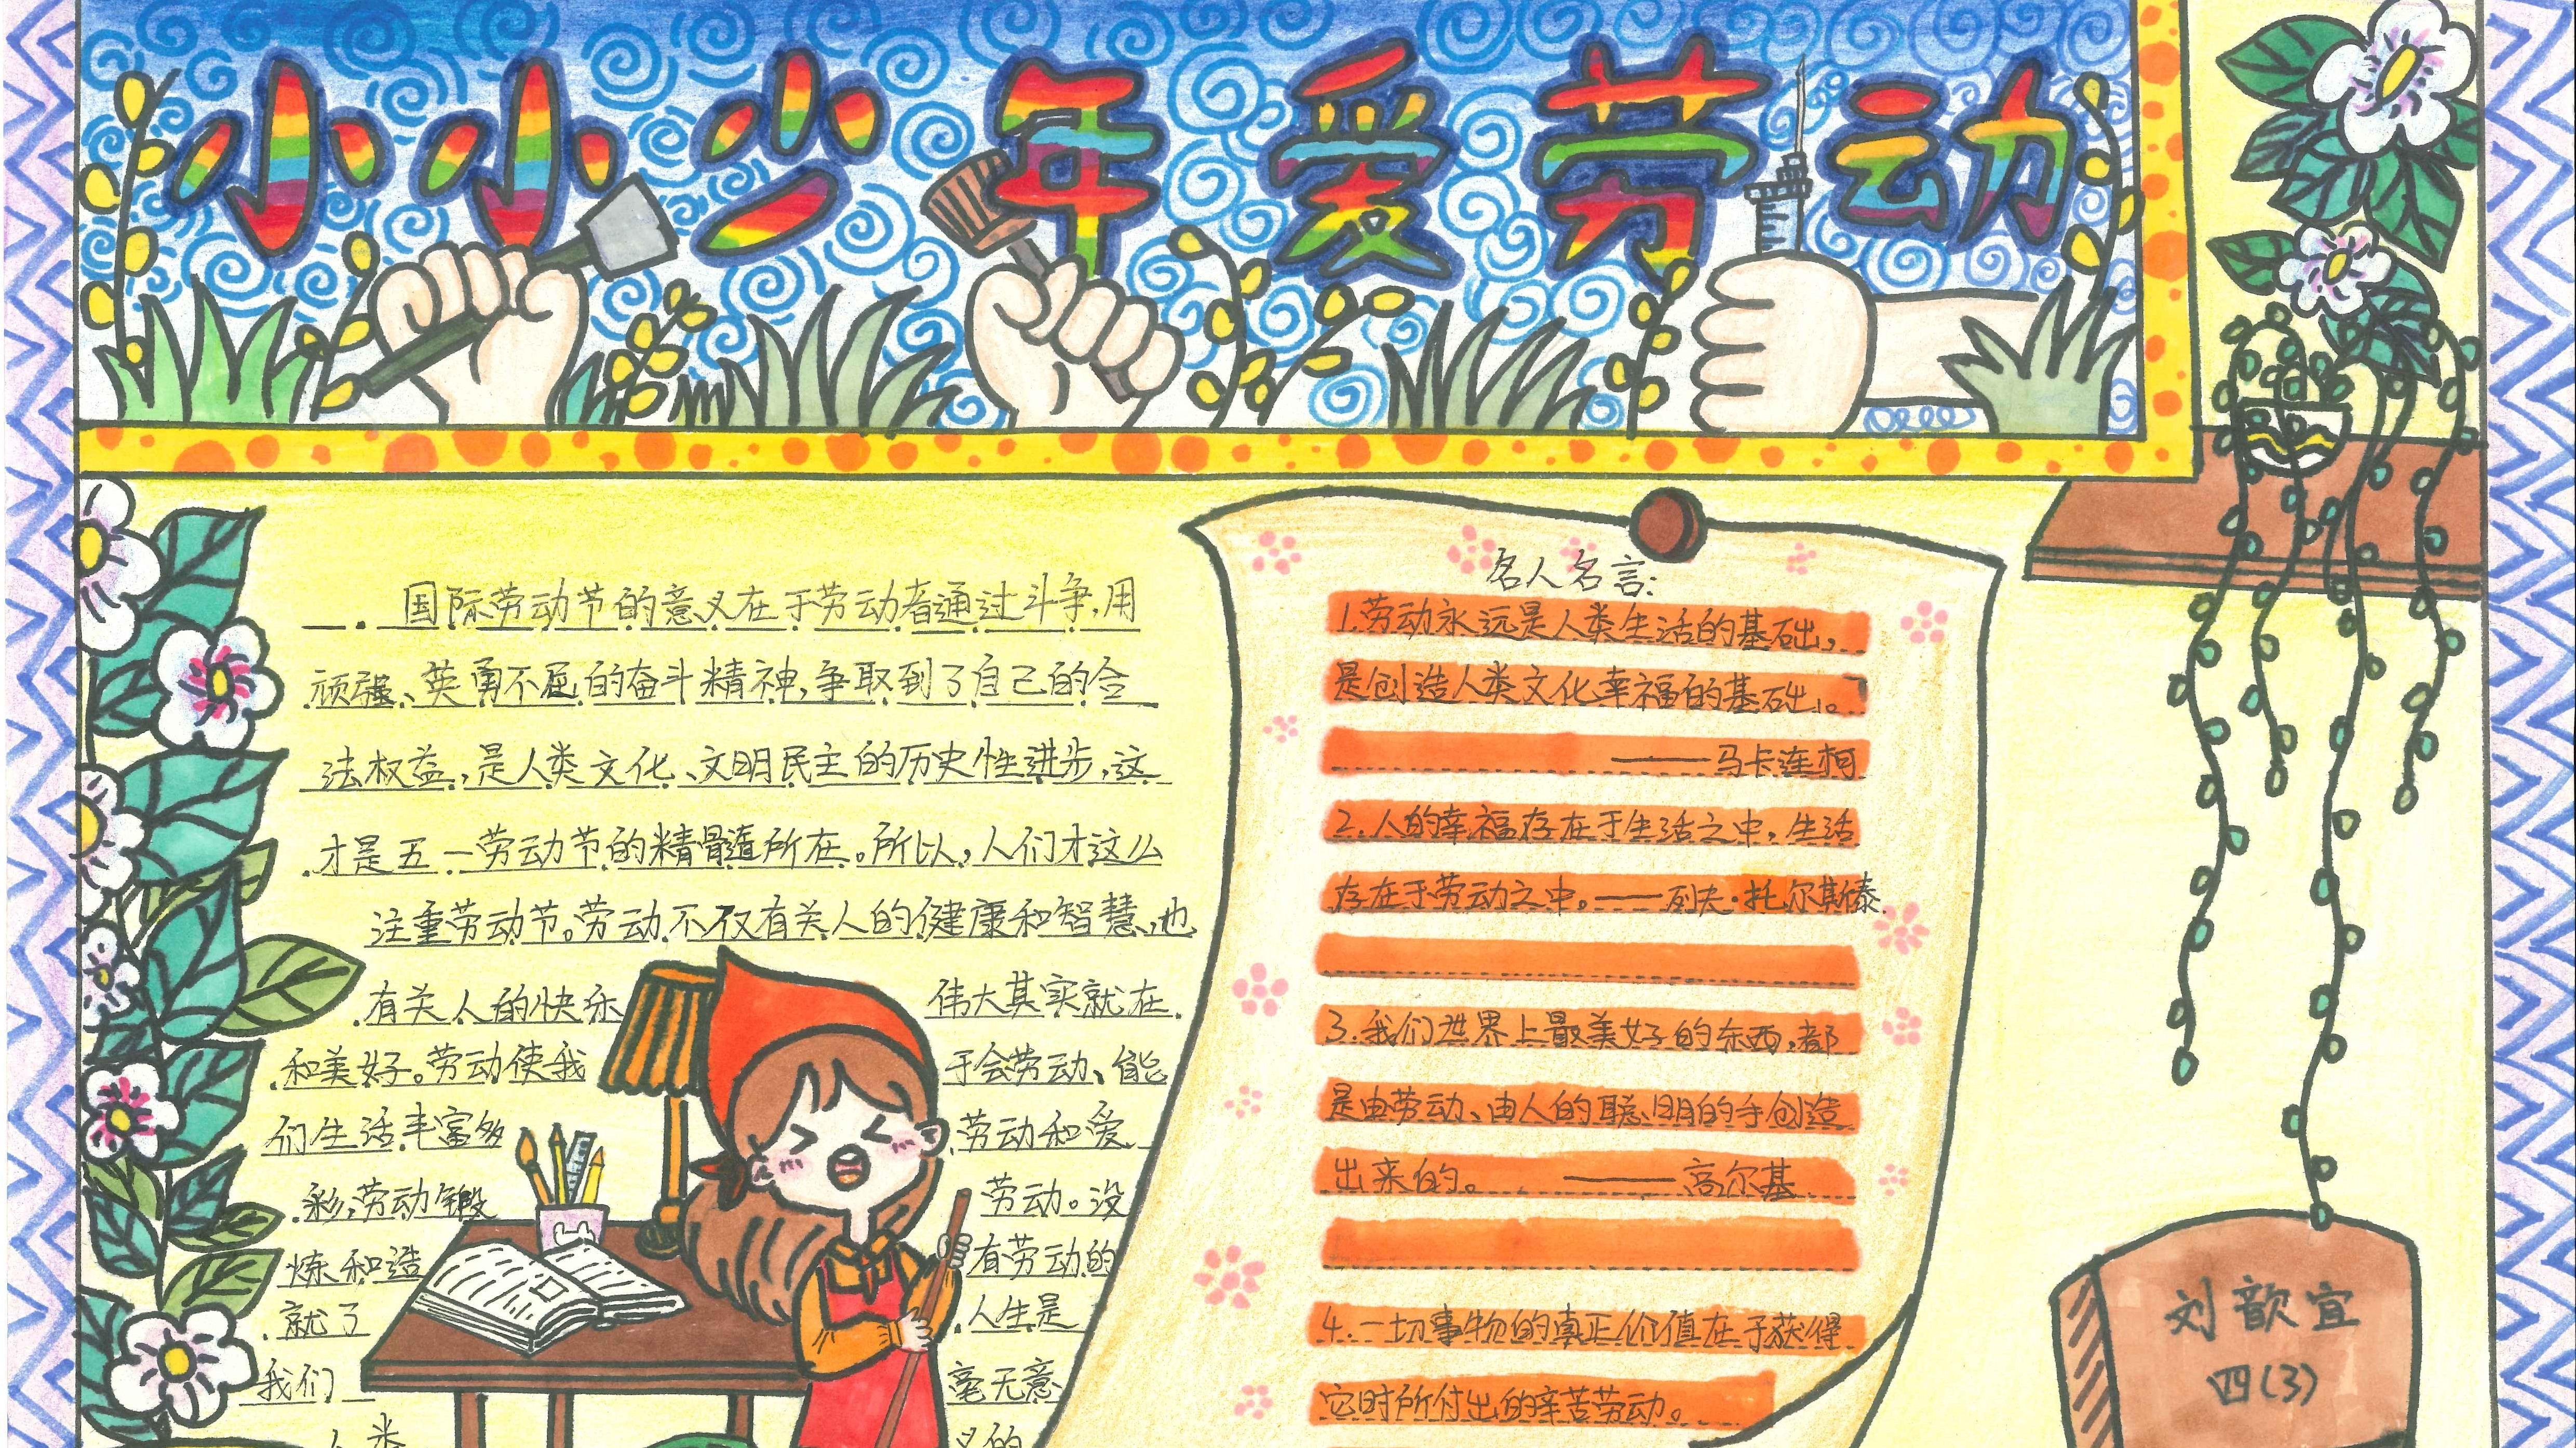 小小少年爱劳动
国际劳动节的意义在于劳动者通过斗争,用
顽强、英勇不屈的奋斗精神,争取到了自己的合
法权益,是人类文化、文明民主的历史性进步,这
才是五一劳动节的精髓所在。所以,人们才这么
注重劳动节。劳动不仅有关人的健康和智慧,也
有关人的快乐
和美好。劳动使我
们生活丰富多
彩,劳动锻
炼和造
就了
我们
人类
伟大其实就在
于会劳动、能
劳动和爱
劳动。没
有劳动的
人生是
毫无意
义的
名人名言:
1.劳动永远是人类生活的基础,
是创造人类文化幸福的基础。
——马卡连柯
2.人的幸福存在于生活之中,生活
存在于劳动之中。——列夫·托尔斯泰
3.我们世界上最美好的东西,都
是由劳动、由人的聪明的手创造
出来的。——高尔基
4.一切事物的真正价值在于获得
它时所付出的辛苦劳动。
刘歆宜
四(3)